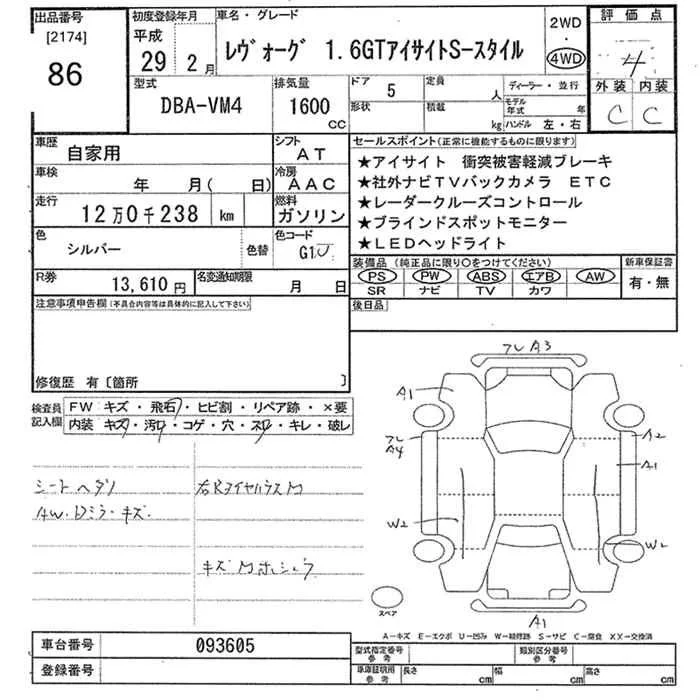 出品番号
[2174]
86
初度登録年月
平成
29 2月
車名・グレード
レヴォーグ 1.6GTアイサイトS-スタイル
2WD
・
4WD
評価点
4
外装 内装
C C
型式
DBA-VM4
排気量
1600
CC
ドア 5
定員 人
形状
積載 kg
ディーラー・並行
モデル年式 年
ハンドル 左・右
車歴
自家用
シフト
AT
車検
年 月( 日)
冷房
AAC
走行
12万0千238 km
燃料
ガソリン
色
シルバー
色替
色コード
G1U
R券
13,610円
名変通知期限
月 日
セールスポイント(正常に機能するものに限ります)
★アイサイト 衝突被害軽減ブレーキ
★社外ナビTVバックカメラ ETC
★レーダークルーズコントロール
★ブラインドスポットモニター
★LEDヘッドライト
装備品(純正品に限り○をつけてください)
PS PW ABS エアB AW
SR ナビ TV カワ
新車保証書
有・無
後日品
注意事項申告欄(不具合内容等は具体的に記入して下さい)
修復歴 有〔箇所 〕
検査員記入欄
FW キズ・飛石・ヒビ割・リペア跡・×要
内装 キズ・汚れ・コゲ・穴・スレ・キレ・破レ
シートヘタリ
AW・Dミラーキズ
キズMホシュウ
フレA3
A1
フレ
A4
A2
A1
W2
W2
A1
スペア
A-キズ E-エクボ U-凹み W-補修跡 S-サビ C-腐食 XX-交換済
車台番号 093605
登録番号
型式指定番号
参考
類別区分番号
参考
車庫証明用
参考
長さ cm
幅 cm
高さ cm